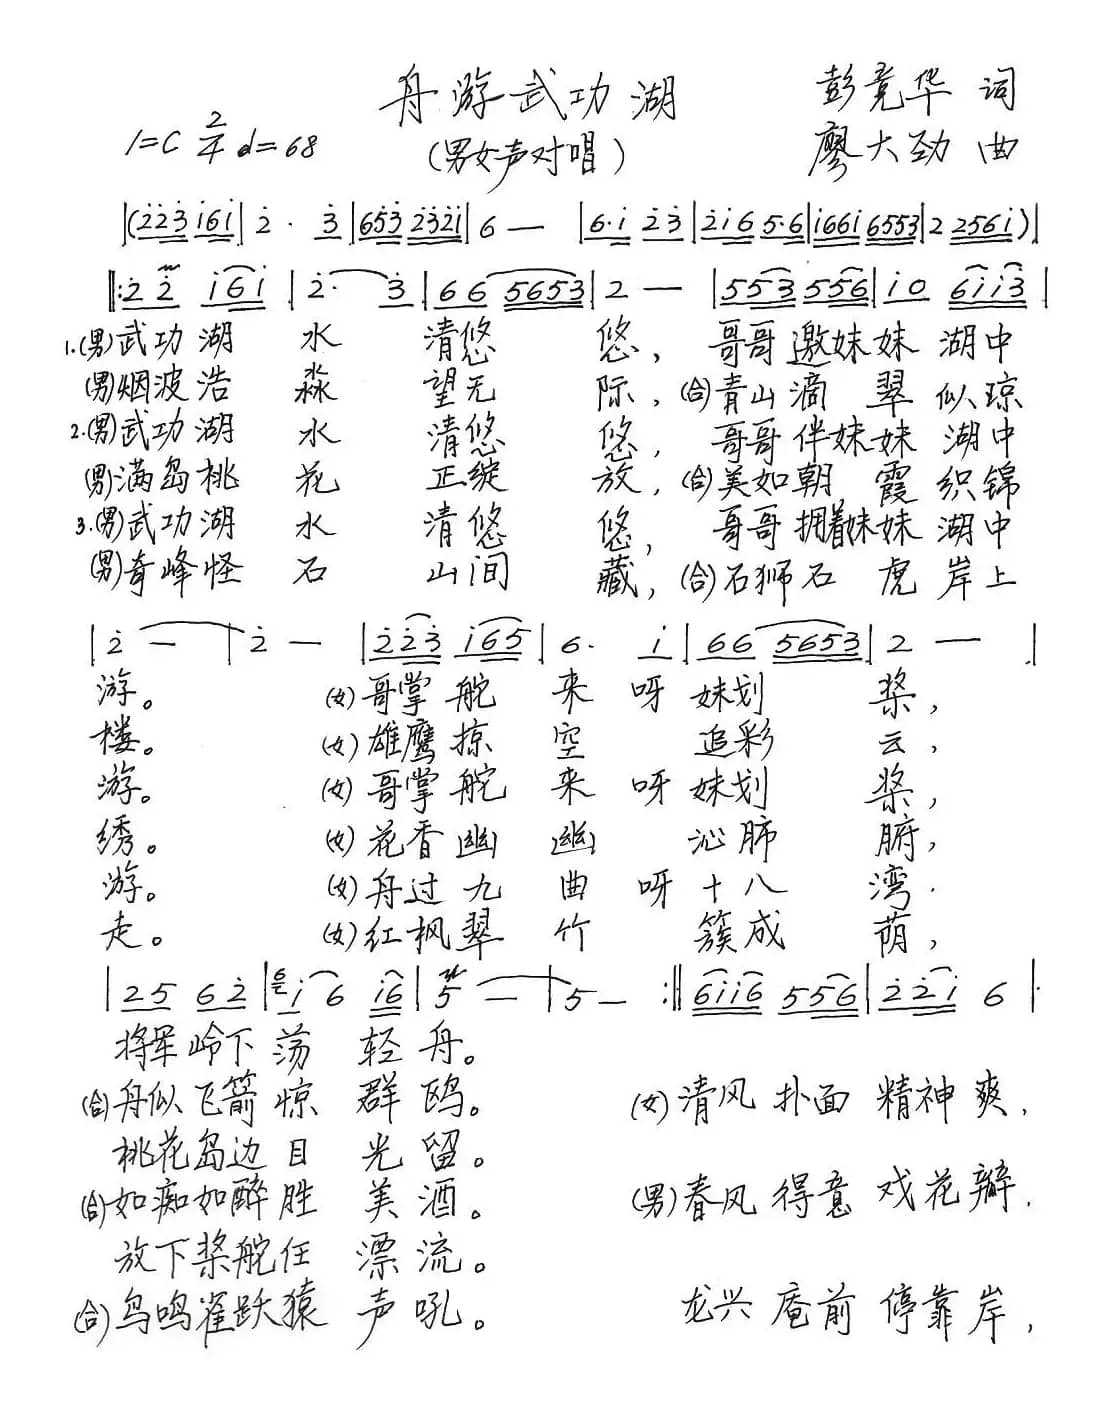 舟游武功湖
彭竟华 词
1=C 2/4 d=68
(男女声对唱)
廖大劲 曲
|(2̇2̇3̇ i6i|2̇· 3̇|653̇ 2̇3̇2̇i|6 —|6·i 2̇3̇|2̇i6 5·6|i66i 6553|2 256i)|
‖:2̇2̇ i6i|2̇· 3̇|66 5653|2 —|553 556|i0 6ii3̇|
1.(男)武功湖 水 清悠 悠, 哥哥邀妹妹 湖中
(男)烟波浩 淼 望无 际, (合)青山滴 翠 似琼
2.(男)武功湖 水 清悠 悠, 哥哥伴妹妹 湖中
(男)满岛桃 花 正绽 放, (合)美如朝 霞 织锦
3.(男)武功湖 水 清悠 悠, 哥哥拥着妹妹 湖中
(男)奇峰怪 石 山间 藏, (合)石狮石 虎 岸上
|2̇ —|2̇ —|2̇2̇3̇ i65|6· i|66 5653|2 —|
游。 (女)哥掌舵 来 呀 妹划 桨,
楼。 (女)雄鹰掠 空 追彩 云,
游。 (女)哥掌舵 来 呀 妹划 桨,
绣。 (女)花香幽 幽 沁肺 腑,
游。 (女)舟过九 曲 呀 十八 湾.
走。 (女)红枫翠 竹 簇成 荫,
|25 62̇|6i6 i6|5 —|5 —:‖6ii6 556|2̇2̇i 6|
将军岭下荡 轻舟。
(合)舟似飞箭惊 群鸥。 (女)清风 扑面 精神爽,
桃花岛边目 光留。
(合)如痴如醉胜 美酒。 (男)春风 得意 戏花瓣.
放下桨舵任 漂流。
(合)鸟鸣雀跃猿 声吼。 龙兴 庵前 停靠岸,